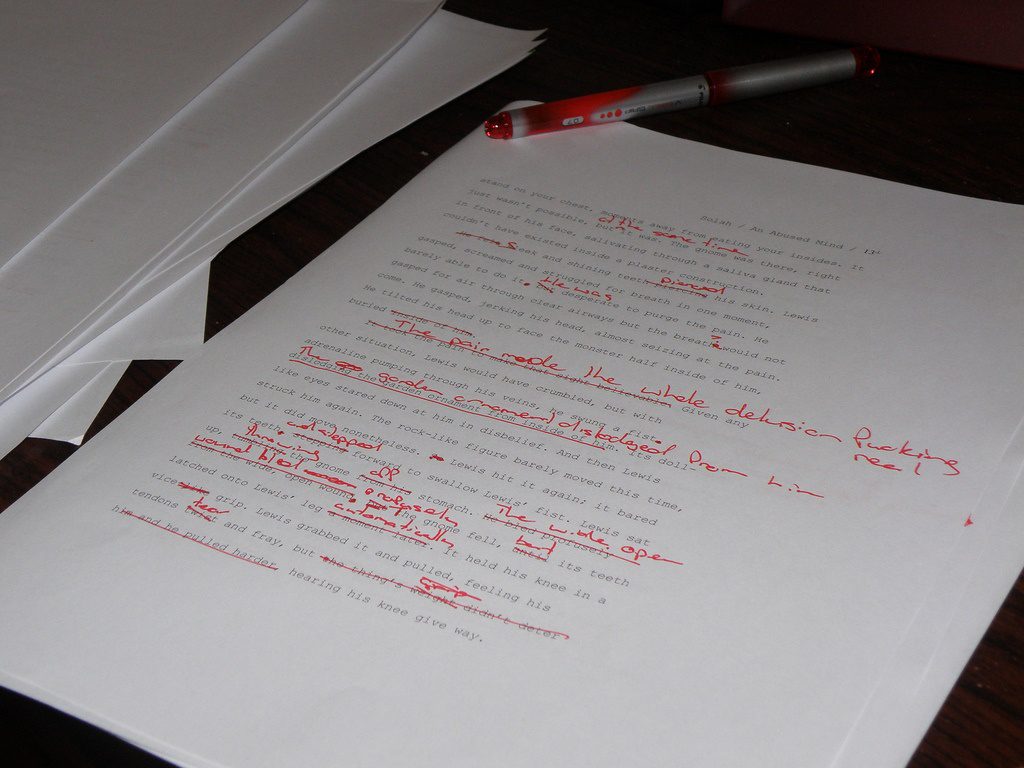 Solah / An Abused Mind / 11
stand on your chest, away from eating your insides. It
at the same time
just wasn't possible, but it was. The gnome was there, right
in front of his face, salivating through a saliva gland that
couldn't have existed inside a plaster construction.
pierced
Seek and shining teeth his skin. Lewis
gasped, screamed and struggled for breath in one moment,
He was
barely able to do it. desperate to purge the pain. He
gasped for air through clear airways but the breath would not
come. He gasped, jerking his head, almost seizing at the pain.
He tilted his head up to face the monster half inside of him,
buried inside of him.
The pain made the whole delusion fucking real
It took the pain to make that sight believable. Given any
other situation, Lewis would have crumbled, but with
adrenaline pumping through his veins, he swung a fist.
The garden ornament dislodged from him
dislodging the garden ornament from inside of him. Its doll-
like eyes stared down at him in disbelief. And then Lewis
struck him again. The rock-like figure barely moved this time,
but it did move nonetheless. Lewis hit it again; it bared
and stepped
its teeth, stepping forward to swallow Lewis' fist. Lewis sat
throwing off
up, the gnome from his stomach. He bled profusely
The wide, open
wound bled profusely
from the wide, open wound. The gnome fell, until its teeth
automatically but
latched onto Lewis' leg a moment later. It held his knee in a
vice grip. Lewis grabbed it and pulled, feeling his
tear
tendons twist and fray, but the thing's weight didn't deter
grip
him and he pulled harder, hearing his knee give way.